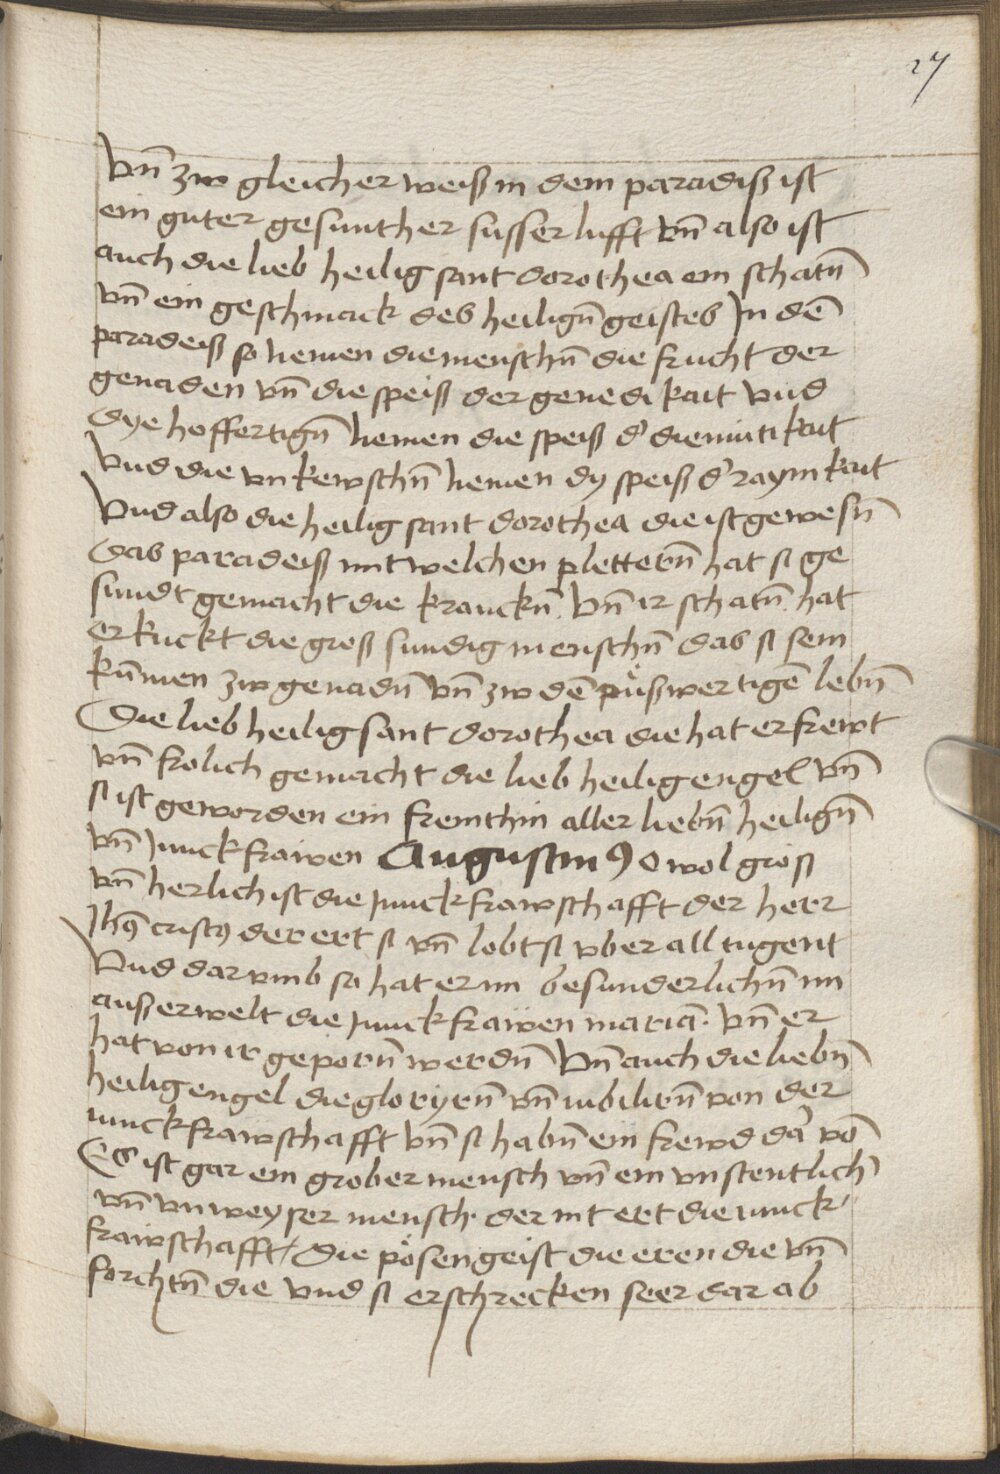 27
vn̄ zw gleicher weiß in dem paradiß ist
ein guter gesunther susser lufft vn̄ also ist
auch die lieb heilig sant dorothea ein schatn̄
vn̄ ein geschmack des heilign̄ geistes In dē
paradeiß so nemen die menschn̄ die frucht der
genaden vn̄ die speiß der genedikait vnd
dye hoffertign̄ nemen die speiß d' diemutikait
vnd die vnkewschn̄ nemen dy speiß d' raynikait
Vnd also die heilig sant dorothea die ist gewesn̄
das paradeiß mit welchen plettern̄ hat si ge
sundt gemacht die kranckn̄. vn̄ ir schatn̄ hat
erkuckt die groß sundig menschn̄ das si sein
kūmen zw genadn̄ vn̄ zw dē pußwertigē lebn̄
Die lieb heilig sant dorothea die hat erfrewt
vn̄ frolich gemacht die lieb heilig engel vn̄
si ist geworden ein frewnthin aller liebn̄ heilign̄
vn̄ Junckfrawen Augustin9 O wol groß
vn̄ herlich ist die Junckfrawschafft der herr
Ihs̄ crist9 der ert si vn̄ lobt si vber all tugent
Vnd darvmb so hat er im besunderlichn̄ im
außerwelt die Junckfrawen mariā. vn̄ er
hat von ir geporn̄ werdn̄ Vn̄ auch die liebn̄
heilig engel die gloryrn̄ vn̄ iubilirn̄ von der
iunckfrawschafft vn̄ si habn̄ ein frewd da' vō
Es ist gar ein grober mensch vn̄ ein vnstentlich'
vn̄ vnweyser mensch. der nit ert die iunck
frawschafft / Die pösen geist die eren die vn̄
forchtn̄ die vnd si erschrecken seer dar ab